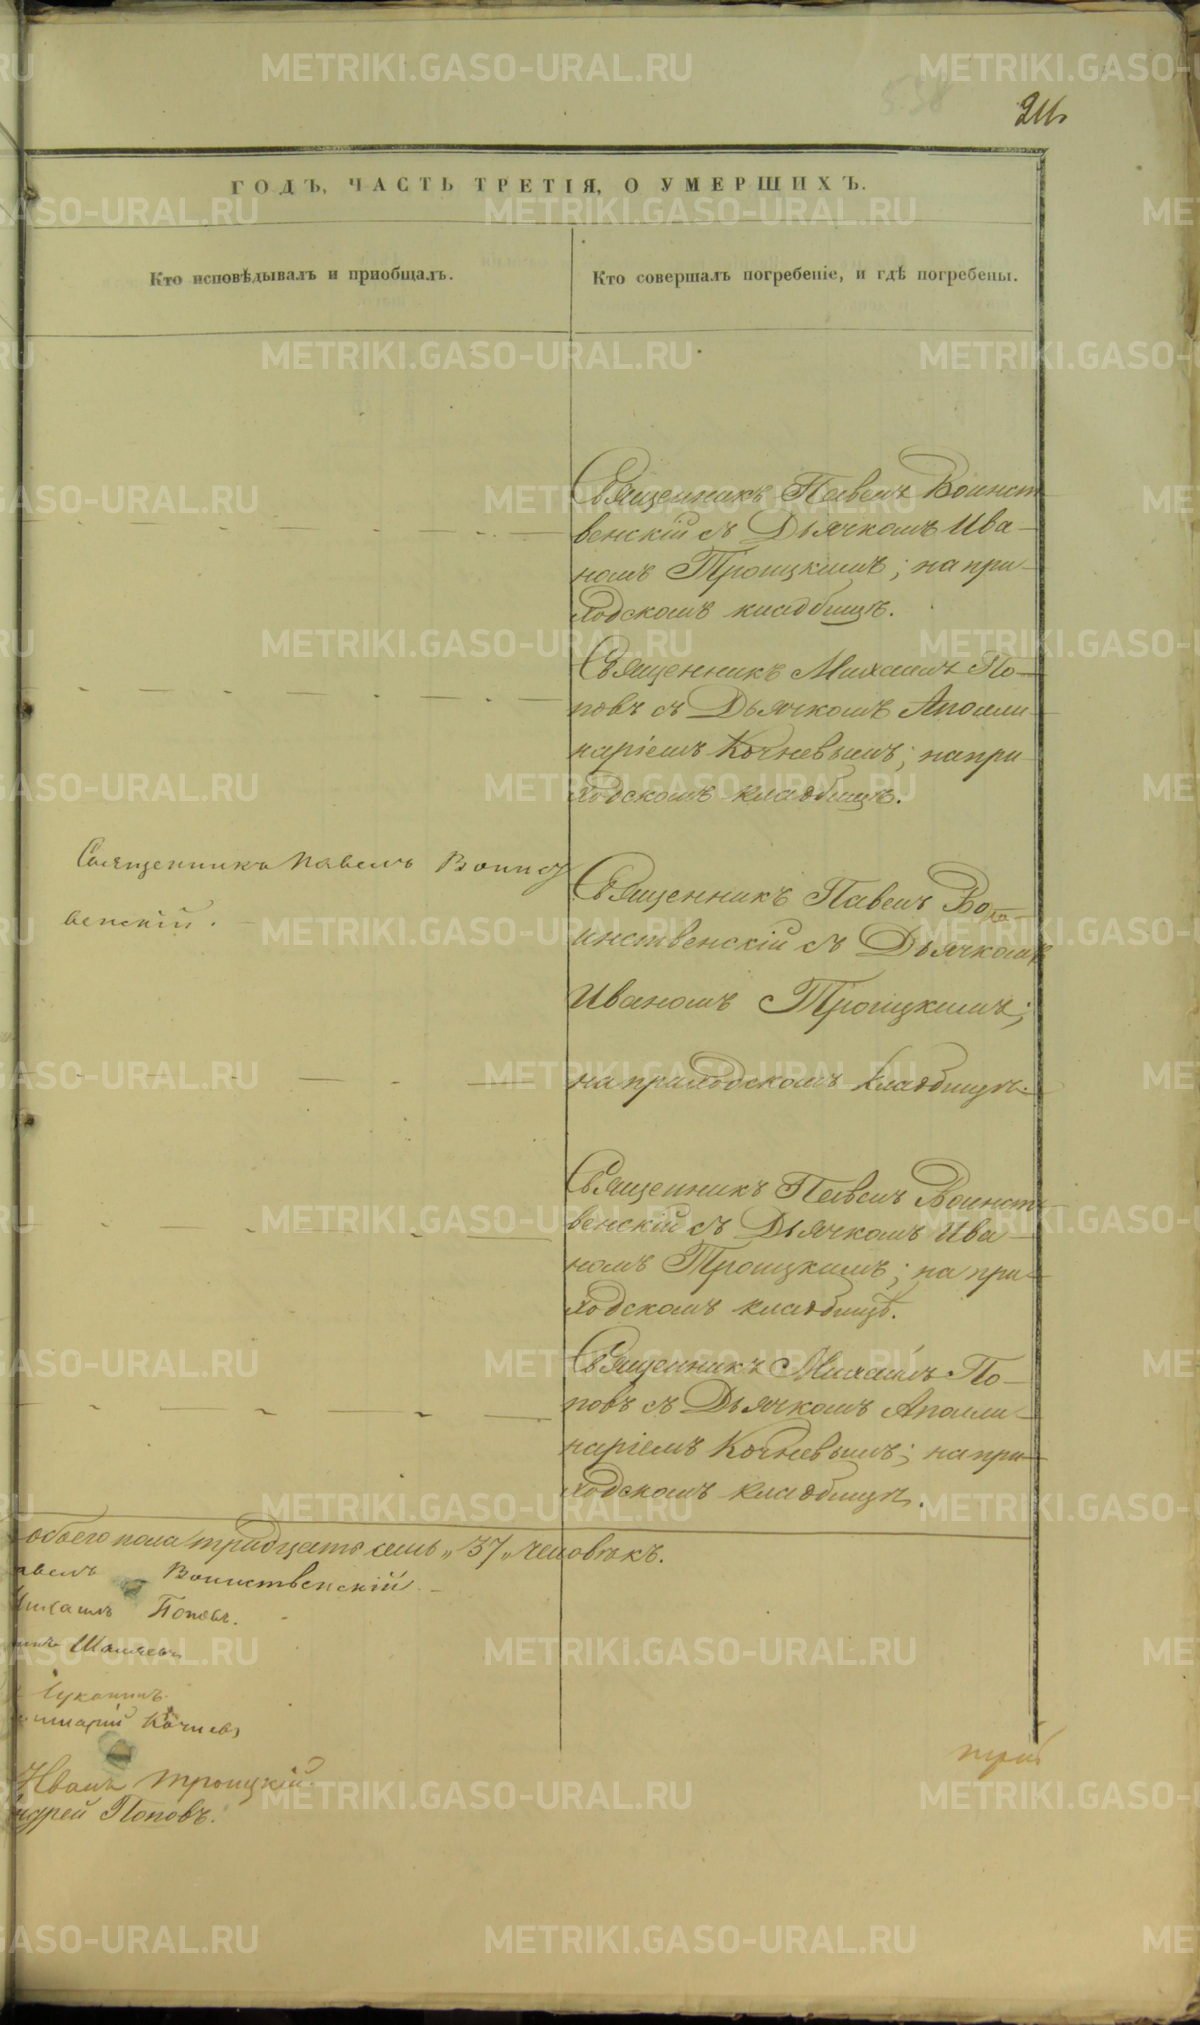 ГОДЪ, ЧАСТЬ ТРЕТІЯ, О УМЕРШИХЪ.
Кто исповѣдывалъ и приобщалъ.
Кто совершалъ погребеніе, и гдѣ погребены.
Священникъ Павелъ Воинст
венскій съ Дьячкомъ Ива-
номъ Троицкимъ; на при-
ходскомъ кладбищѣ.
Священникъ Михаилъ По-
повъ съ Дьячкомъ Аполли-
наріемъ Кочневымъ; на при-
ходскомъ кладбищѣ.
Священникъ Павелъ Воинст
венскій.
Священникъ Павелъ Во-
инственскій съ Дьячкомъ
Иваномъ Троицкимъ;
на приходскомъ кладбищѣ.
Священникъ Павелъ Воинст-
венскій съ Дьячкомъ Ива-
номъ Троицкимъ; на при-
ходскомъ кладбищѣ.
Священникъ Михаилъ По-
повъ съ Дьячкомъ Аполли-
наріемъ Кочневымъ; на при-
ходскомъ кладбищѣ.
обоего пола тридцать семь „37„ человѣкъ.
авелъ Воинственскій.
Михаилъ Поповъ.
Иванъ Троицкій.
ндрей Поповъ.
METRIKI.GASO-URAL.RU